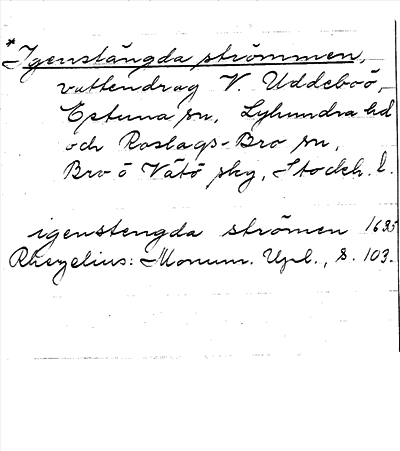 *Igenstängda strömmen,
vattendrag V. Uddeboö,
Estuna sn, Lyhundra hd
och Roslags-Bro sn,
Bro o Vätö sky, Stockh. l.
igenstengda strömen 1635
Rhezelius: Monum. Upl., s. 103.